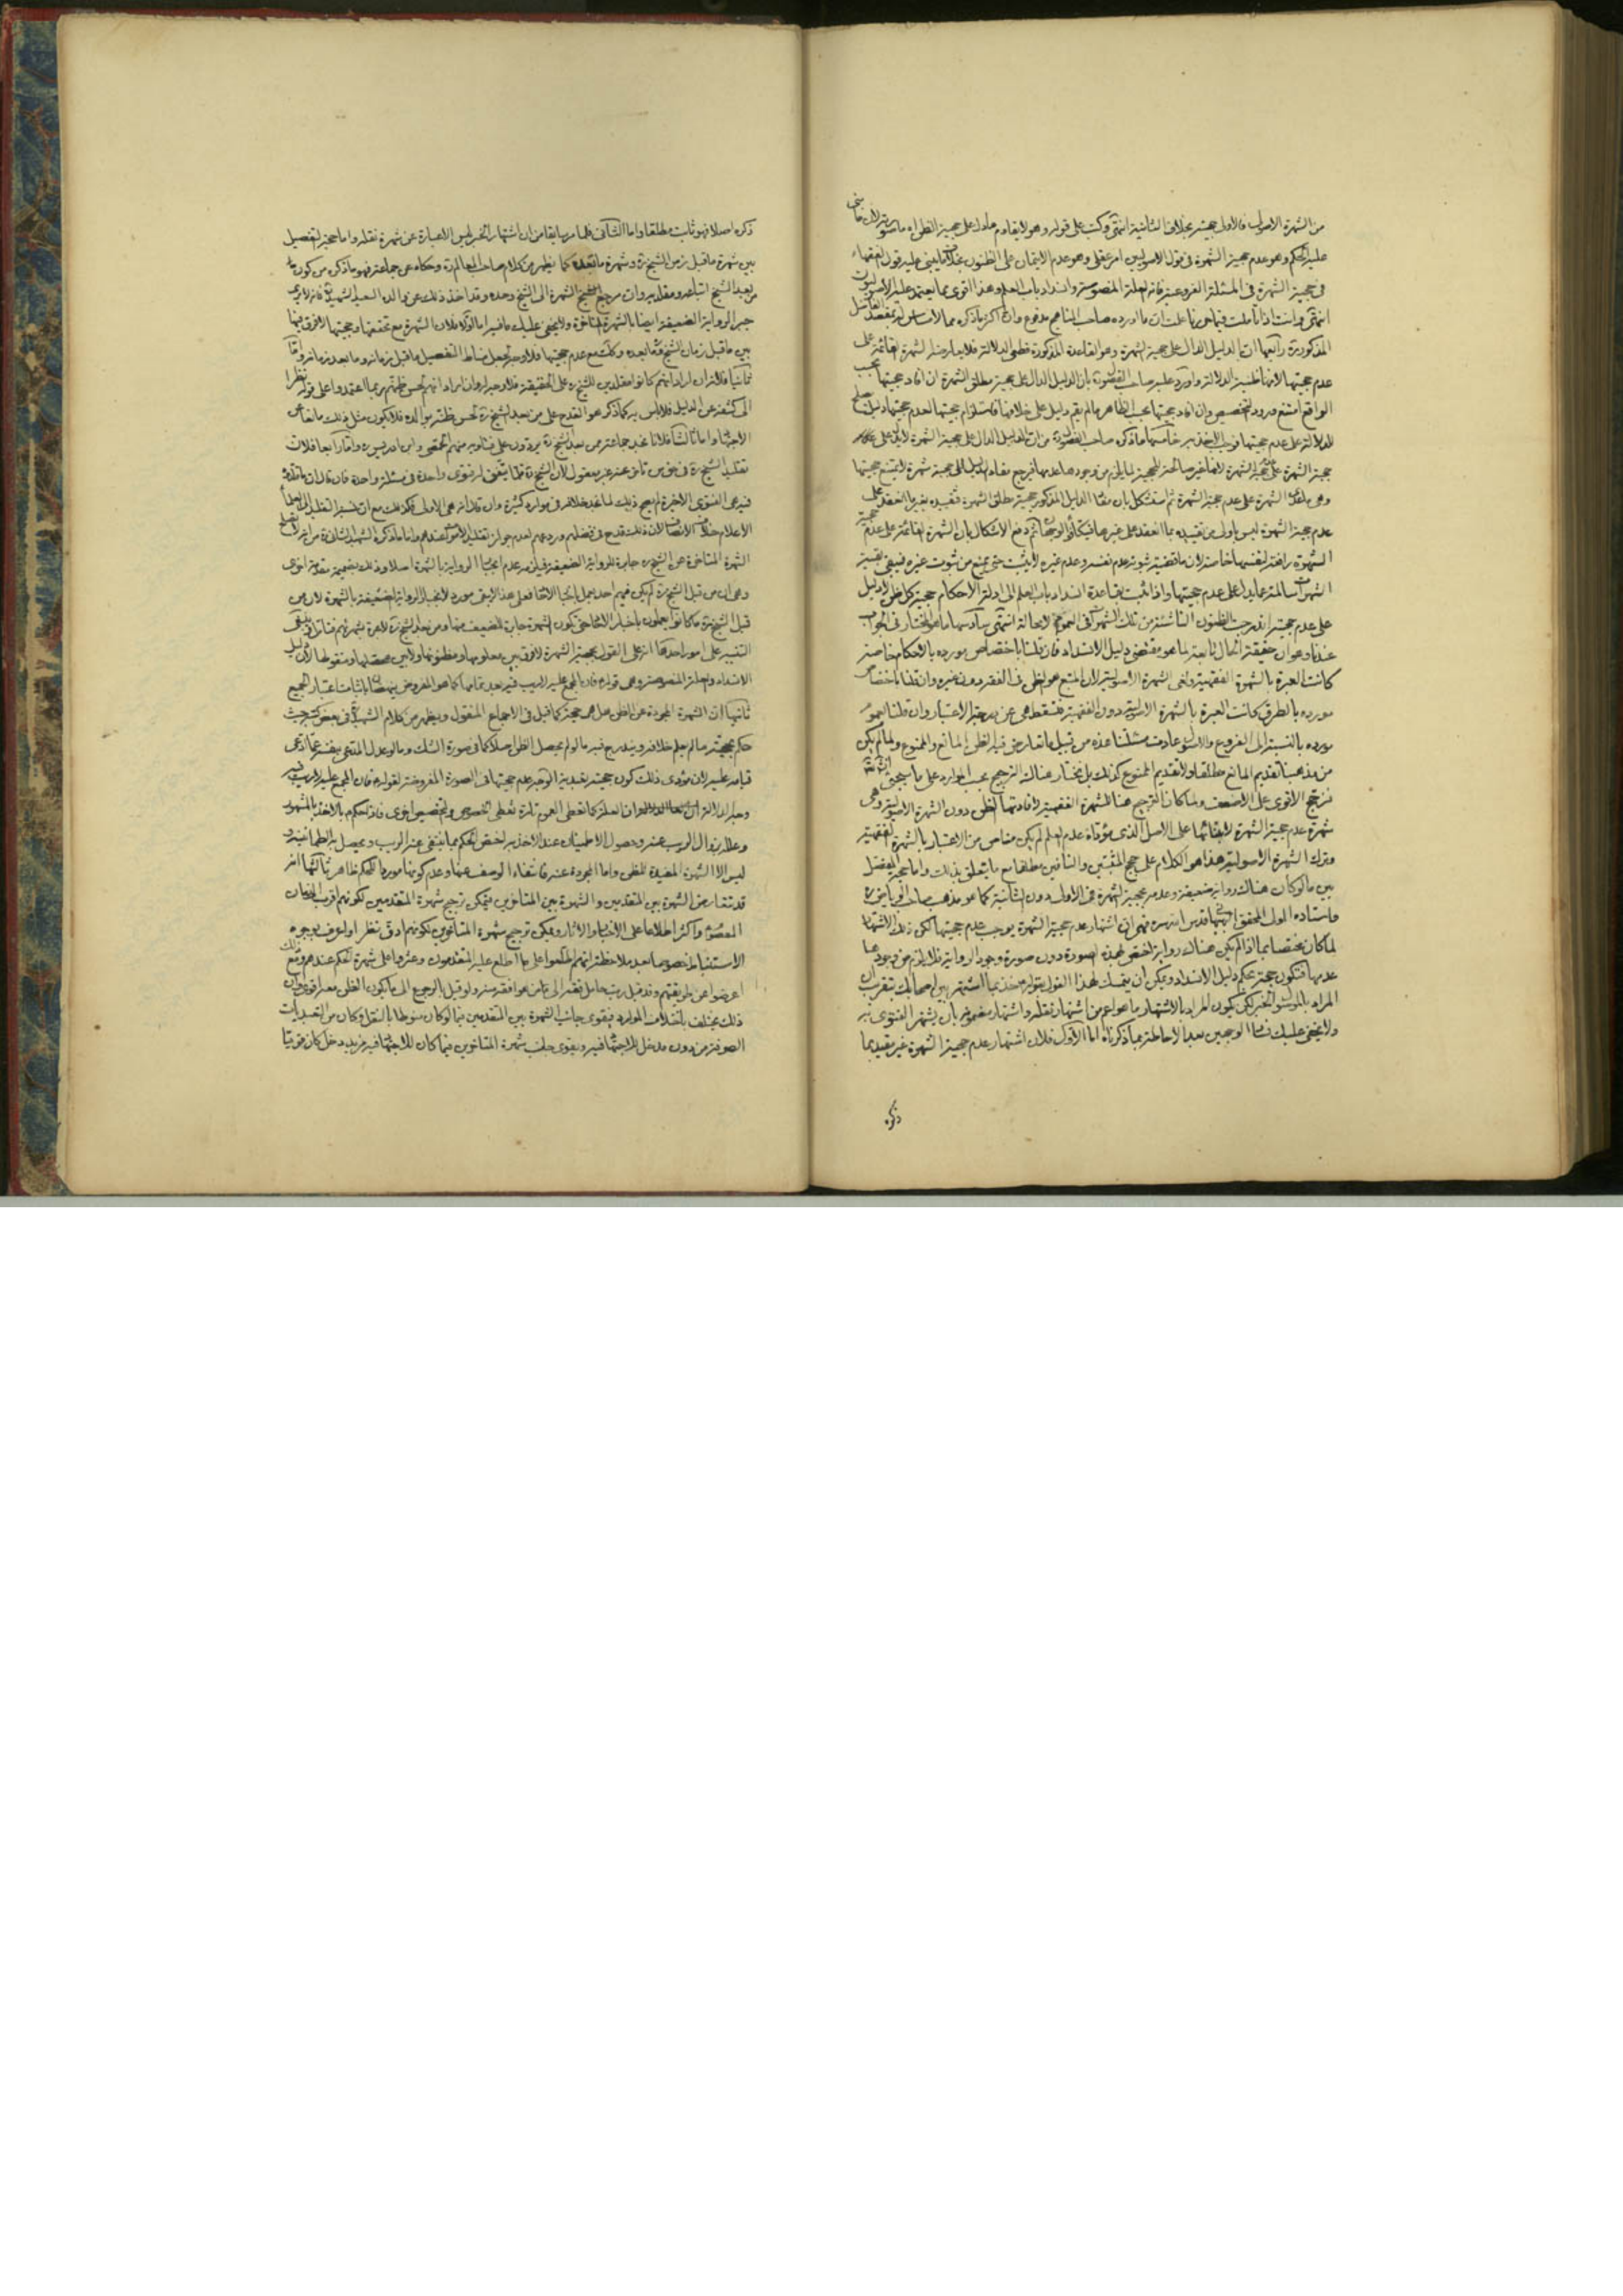 من الشهرة الاصولية فالاولى حجة بخلاف الثانية انتهى وكتب على قوله وهو لا يقاوم ما دل على حجية الظن اه
عليه الحكم وهو عدم حجية الشهرة في قول الاصوليين امر عقلي وهو عدم الايتمان على الظنون بخلاف ما يبنى عليه قول الفقهاء
في حجية الشهرة في المسئلة الفرعية فانه العلة المنصوصة وانسداد باب العلم وهذا اقوى مما يعتمد عليه الاصوليون
انتهى وانت اذا تأملت فيما حررنا علمت ان ما اورده صاحب المناهج مدفوع وان اكثر ما ذكره مما لا مساس له بمقصد الفاضل
المذكور ره رابعها ان الدليل الدال على حجية الشهرة وهو القاعدة المذكورة قطعي الدلالة فلا يعارضه الشهرة القائمة على
عدم حجيتها لانها ظنية الدلالة واورد عليه صاحب الفصول ره بان الدليل الدال على حجية مطلق الشهرة ان افاد حجيتها بحسب
الواقع امتنع ورود التخصيص وان افاد حجيتها بحسب الظاهر ما لم يقم دليل على خلافها فاستلزام حجيتها لعدم حجيتها دليل
للدلالة على عدم حجيتها فوجب الاخذ به خامسها ما ذكره صاحب الفصول ره من ان الدليل الدال على حجية الشهرة لا يدل على
حجية الشهرة على عدم حجية الشهرة لانها غير صالحة للحجية لما يلزم من وجودها عدمها فيرجع مفاد الدليل الى حجية شهرة لا يمتنع حجيتها
وهي ما عدا الشهرة على عدم حجية الشهرة ثم استشكل بان مفاد الدليل المذكور حجية مطلق الشهرة فتقييده بغير ما انعقد على
عدم حجية الشهرة ليس باولى من تقييده بما انعقد على غيرها فيتكافؤ الوجهان ثم دفع الاشكال بان الشهرة القائمة على عدم حجية
الشهرة رافعة لنفسها خاصة لان ما قضية ثبوته عدم نفسه وعدم غيره لا يثبت حتى يمنع من ثبوت غيره فيبقى بقية
الشهرات سالمة عما يدل على عدم حجيتها واذا ثبت بقاعدة انسداد باب العلم الى ادلة الاحكام حجية كل ظن لا دليل
على عدم حجيته اندرجت الظنون الناشئة من تلك الشهرات في العموم لا محالة انتهى سادسها ما هو المختار في الجواب
عندنا وهو ان حقيقة الحال تابعة لما هو مقتضى دليل الانسداد فان قلنا باختصاص مورده بالاحكام خاصة
كانت العبرة بالشهرة الفقهية ولغى الشهرة الاصولية لان المتبع هو الظن في الفقه دون غيره وان قلنا باختصاص
مورده بالطرق كانت العبرة بالشهرة الاصولية دون الفقهية فتسقط هي عن درجة الاعتبار وان قلنا بعموم
مورده بالنسبة الى الفروع والاصول عادت مسئلتنا هذه من قبيل ما تعارض فيه الظن المانع والممنوع ولما لم يكن
من مذهبنا تقديم المانع مطلقا ولا تقديم الممنوع كذلك بل نختار هناك الترجيح بحسب الموارد على ما سيجئ
نرجح الاقوى على الاضعف ولما كان الترجيح هنا للشهرة الفقهية لافادتها الظن دون الشهرة الاصولية وهي
شهرة عدم حجية الشهرة لابتنائها على الاصل الذي مؤداه عدم العلم لم يكن مناص من الاعتبار بالشهرة الفقهية
وترك الشهرة الاصولية هذا هو الكلام على حجج المثبتين والنافين مطلقا مع ما يتعلق بذلك واما حجة المفصل
بين ما لو كان هناك رواية ضعيفة وعدمه بحجية الشهرة في الاولى دون الثانية كما هو مذهب صاحب الرياض ره
واستاده المولى المحقق البهبهاني قدس سره فهي ان اشتهار عدم حجية الشهرة يوجب عدم حجيتها لكن ذلك الاشتهار
لما كان مختصا بما اذا لم يكن هناك رواية اختص بهذه الصورة دون صورة وجود الرواية فلا يلزم من وجودها
عدمها فتكون حجة بحكم دليل الانسداد ويمكن ان يتمسك لهذا القول بقوله ع خذ بما اشتهر بين اصحابك بتقريب ان
المراد بالموصول الخبر لكن يكون المراد بالاشتهار ما هو اعم من اشتهار نقله واشتهار مضمونه بان يشتهر الفتوى به
ولا يخفى عليك فساد الوجهين بعد الاحاطة بما ذكرناه اما الاول فلان اشتهار عدم حجية الشهرة غير مقيد بما
ذكره
ذكره اصلا فهو ثابت مطلقا واما الثاني فلما مر سابقا من ان اشتهار الخبر ليس الا عبارة عن شهرة نقله واما حجة التفصيل
بين شهرة ما قبل زمن الشيخ ره وشهرة ما بعده كما يظهر من كلام صاحب المعالم ره وحكاه عن جماعة فهو ما ذكره من كون
من بعد الشيخ اتباعه ومقلديه وان مرجع الشهرة الى الشيخ وحده وقد اخذ ذلك عن والده السعيد الشهيد الثاني فانه لا يرى
جبر الرواية الضعيفة ايضا بالشهرة المتاخرة ولا يخفى عليك ما فيه اما اولا فلان الشهرة مع تحققها وحجيتها لا فرق فيها
بين ما قبل زمان الشيخ وما بعده وكذلك مع عدم حجيتها فلا وجه لجعل مناط التفصيل ما قبل زمانه وما بعد زمانه واما
ثانيا فلانه ان اراد انهم كانوا مقلدين للشيخ ره على الحقيقة فلا وجه له وان اراد انهم لحسن ظنهم به ربما اعتمدوا على قوله نظرا
الى كشفه عن الدليل فلا باس به كما ذكر هو القدح على من بعد الشيخ ره لحسن ظنه بوالده فلا يكون مثل ذلك مانعا عن
الاجتهاد واما ثالثا فلانا نجد جماعة ممن بعد الشيخ ره يردون على فتاويه منهم المحقق وابن ادريس ره واما رابعا فلان
تقليد الشيخ ره في حق من تاخر عنه غير معقول لان الشيخ ره قلما يتفق له فتوى واحدة في مسئلة واحدة فان قال ان ما قلدوه
فيه هي الفتوى الاخيرة لم يصح ذلك لما نجد خلافه في موارد كثيرة وان قال انه هي الاولى فكذلك مع ان نسبة التقليد الى العلماء
الاعلام خلاف الانصاف لان ذلك قدح في فضلهم وورعهم لعدم جواز تقليد الاموات عندهم واما ما ذكره الشهيد الثاني ره من انه لا يصلح
الشهرة المتاخرة عن الشيخ ره جابرة للرواية الضعيفة فيلزمه عدم انجبار الرواية بالشهرة اصلا وذلك بضميمة مقدمة اخرى
وهي ان من قبل الشيخ ره لم يكن فيهم احد يعمل باخبار الاحاد فعلى هذا لا يبقى مورد لانجبار الرواية الضعيفة بالشهرة لان من
قبل الشيخ ره ما كانوا يعملون باخبار الاحاد حتى تكون الشهرة جابرة للضعيف منها ومن بعد الشيخ ره لا عبرة بشهرتهم فتامل ينبغي
التنبيه على امور احدها انه على القول بحجية الشهرة لا فرق بين معلومها ومظنونها ولا بين محصلها ومنقولها لان دليل
الانسداد والعلة المنصوصة وهي قوله ع فان المجمع عليه لا ريب فيه بعد تمامها كما هو المفروض ينهضان باثبات اعتبار الجميع
ثانيها ان الشهرة المجردة عن الظن هل هي حجة كما قيل في الاجماع المنقول ويظهر من كلام الشهيد في بعض كتبه حيث
حكم بحجيته ما لم يعلم خلافه ويندرج فيه ما لو لم يحصل الظن اصلا كما في صورة الشك وما لو عدل المدعي بنفسه عما ادعى
قيامه عليه لان مؤدى ذلك كون حجيته تعبدية الوجه عدم حجيتها في الصورة المفروضة لقوله ع فان المجمع عليه لا ريب فيه
وجه الدلالة ان العلة كما تعطي العموم تارة تعطي الخصوص والتخصيص اخرى فاذا حكم ع بالاخذ بالمشهور
وعلله بزوال الريب عنه وحصول الاطمينان عند الاخذ به اختص الحكم بما ينتفي عنه الريب ويحصل به الطمانينة و
ليس الا الشهرة المفيدة للظن واما المجردة عنه فانتفاء الوصف عنها وعدم كونها موردا للحكم ظاهر ثالثها انه
قد تتعارض الشهرة بين المتقدمين والشهرة بين المتاخرين فيمكن ترجيح شهرة المتقدمين لكونهم اقرب الى زمان
المعصوم واكثر اطلاعا على الاخبار والاثار ويمكن ترجيح شهرة المتاخرين لكونهم ادق نظرا واعرف بوجوه
الاستنباط خصوصا بعد ملاحظة انهم اطلعوا على ما اطلع عليه المتقدمون وعثروا على شهرة الحكم عندهم ومع ذلك
اعرضوا عن طريقتهم ولو قيل بالرجوع الى ما يكون الظن معه اقوى وان
ذلك يختلف باختلاف الموارد فيقوى جانب الشهرة بين المتقدمين فيما لو كان منوطا بالنقل وكان من التعبديات
الصرفة من دون مدخل للاجتهاد فيه ويقوى جانب شهرة المتاخرين فيما كان للاجتهاد فيه مزيد دخل كان قريبا